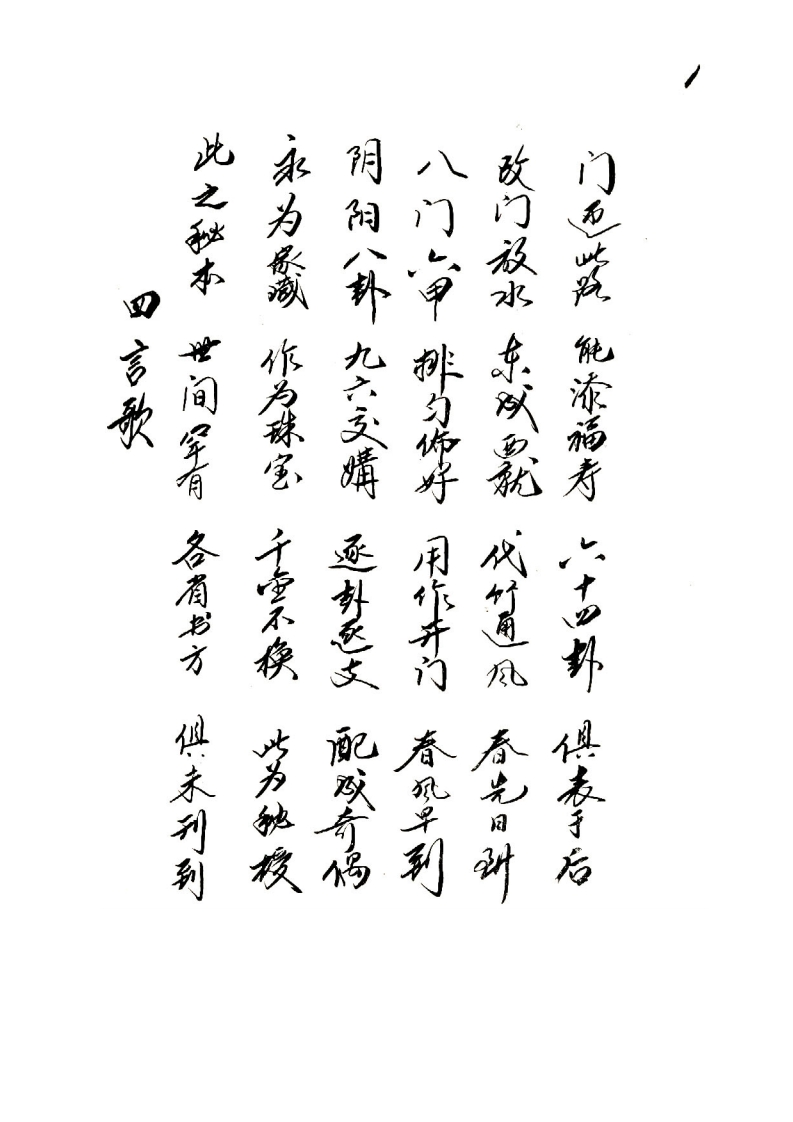 1
四言歌
此之秘本 世间罕有 各省书方 俱未刊到
永为家藏 作为珠宝 千金不换 此为秘授
阴阳八卦 九六交媾 逐卦逐支 配成奇偶
八门六甲 排匀佈好 用作开门 春风早到
改门放水 东成西就 代竹通风 春光日
门迊此路 能添福寿 六十四卦 俱表于后